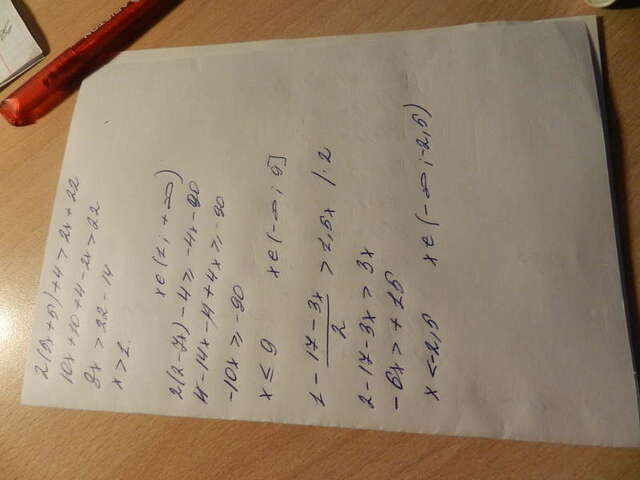 2(5x+5)+4>2x+22
10x+10+4-2x>22
8x>22-14
x>1
x∈(1;+∞)
2(2-7x)-4≥-4x-90
4-14x-4+4x≥-90
-10x≥-90
x≤9 x∈(-∞;9]
1-(17-3x)/2>1,5x |·2
2-17-3x>3x
-6x>+15
x<-2,5 x∈(-∞;-2,5)